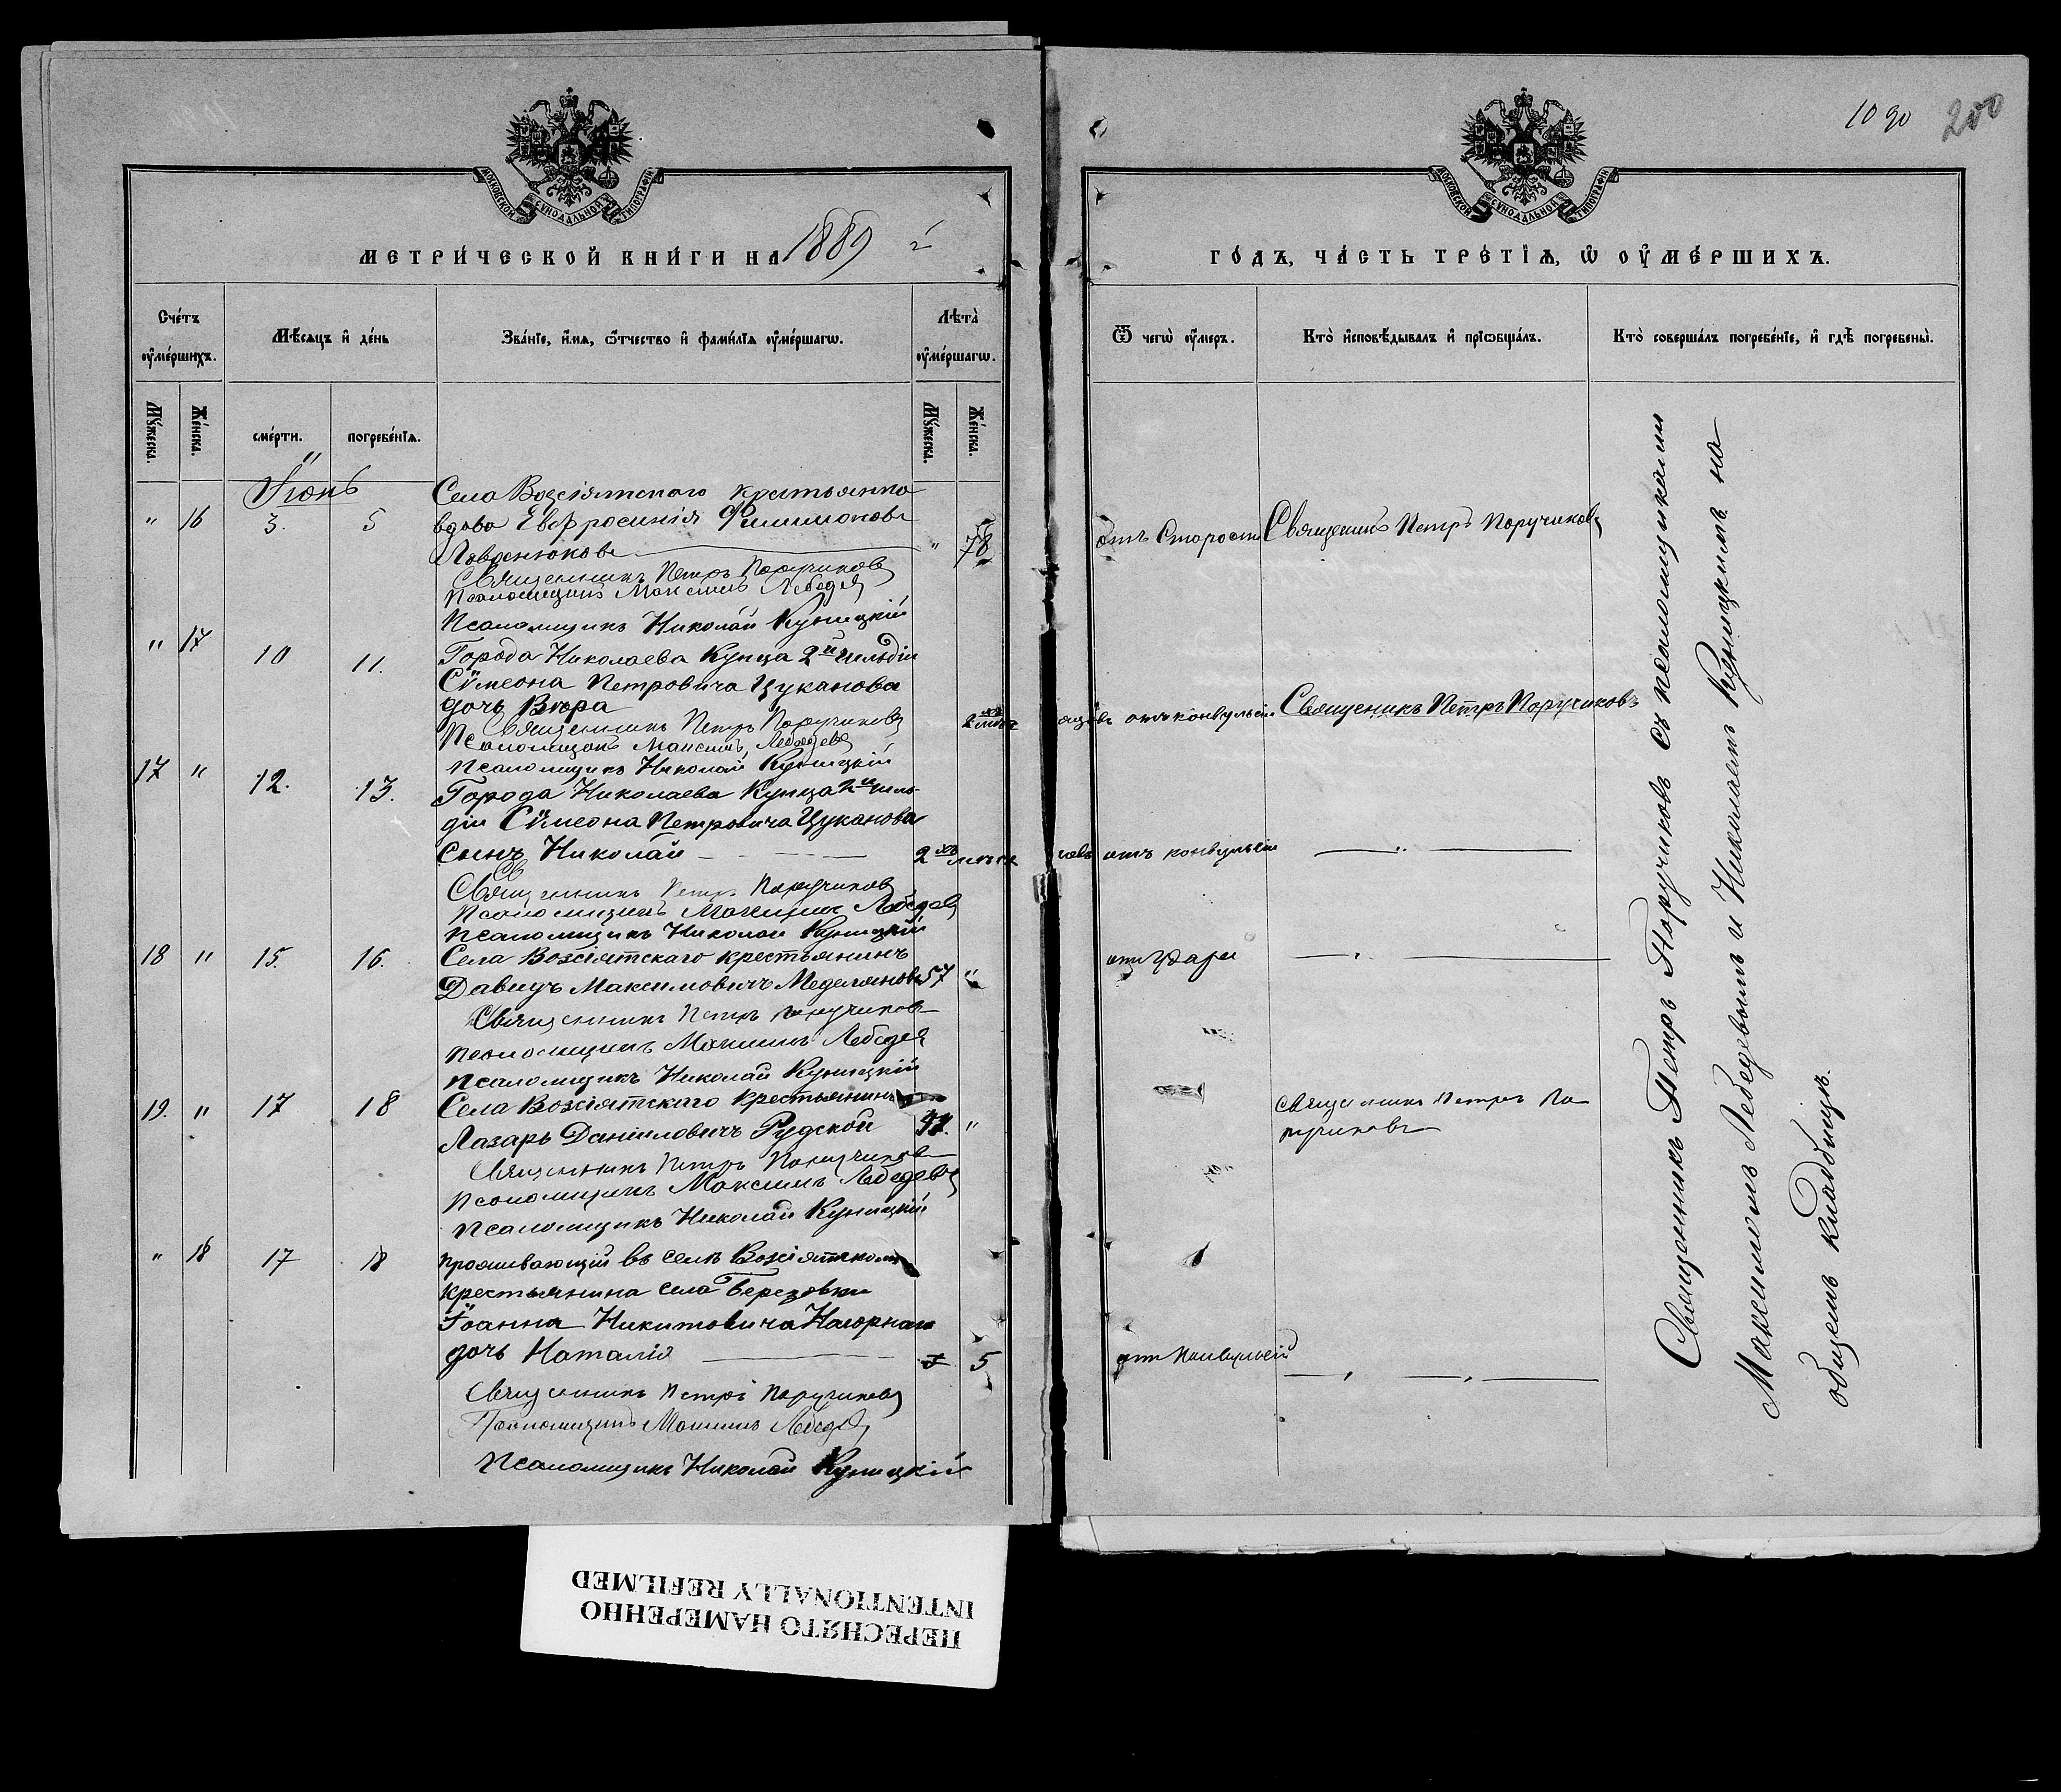 МОСКОВСКОЙ СѴНОДАЛЬНОЙ ТИПОГРАФІИ
МЕТРИ́ЧЕСКОЙ КНИ́ГИ НА 1889
Сче́тъ ᲂу҆ме́ршихъ.
Мѣ́сяцъ и҆ де́нь
Зва́нїе, и҆́мѧ, ѻ҆́тчество и҆ фами́лїѧ ᲂу҆ме́ршагѡ.
Лѣ́та ᲂу҆ме́ршагѡ.
Мꙋ́жеска.
Же́нска.
сме́рти.
погребе́нїѧ.
Мꙋ́жеска.
Же́нска.
Іюнь
" 16 3. 5 Села Возсіятскаго крестьянка
вдова Евфросинія Филимонова
Лавренюкова " 78
Священникъ Петръ Поручиковъ
Псаломщикъ Максимъ Лебедев
Псаломщикъ Николай Куницкій
" 17 10 11. Города Николаева Купца 2й гильдіи
Сѵмеона Петровича Цуканова
дочь Вѣра 2
Священникъ Петръ Поручиковъ
Псаломщикъ Максимъ Лебедевъ
Псаломщикъ Николай Куницкій
17 " 12. 13. Города Николаева Купца 2й гиль-
діи Сѵмеона Петровича Цуканова
сынъ Николай 2хъ
Св
Священникъ Петръ Поручиковъ
Псаломщикъ Максимъ Лебедев
Псаломщикъ Николай Куницкій
18 " 15. 16. Села Возсіятскаго крестьянинъ
Давидъ Максимовичъ 57 "
Священникъ Петръ Поручиковъ
Псаломщикъ Максимъ Лебедев
Псаломщикъ Николай Куницкій
19. " 17 18 Села Возсіятскаго крестьянинъ
Лазарь Даніиловичъ Рудской "
Священникъ Петръ Поручиковъ
Псаломщикъ Максимъ Лебедевъ
Псаломщикъ Николай Куницкій
" 18 17 18 проживающій въ селѣ Возсіятскомъ
крестьянина села Березовки
Іоанна Никитовича Нагорнаго
дочь Наталія 5
Священникъ Петръ Поручиковъ
Псаломщикъ Максимъ Лебедев
Псаломщикъ Николай Куницкій
1090 200
МОСКОВСКОЙ СѴНОДАЛЬНОЙ ТИПОГРАФІИ
ГО́ДЪ, ЧА́СТЬ ТРЕ́ТЇѦ, Ѡ҆ ОУ҆МЕ́РШИХЪ.
Ѿ чегѡ̀ ᲂу҆́меръ.
Кто̀ и҆сповѣ́дывалъ и҆ прїѡбща́лъ.
Кто̀ соверша́лъ погребе́нїе, и҆ гдѣ̀ погребены̀.
отъ Старости Священикъ Петръ Поручиковъ
отъ конвульсіи Священикъ Петръ Поручиковъ
отъ конвульсіи "
отъ Удара "
священникъ Петръ По
ручиковъ
отъ Конвульсій "
Священникъ Петръ Поручиковъ съ псаломщиками
Максимомъ Лебедевымъ и Николаемъ Куницкимъ на
общемъ кладбищѣ.
ПЕРЕСНЯТО НАМЕРЕННО
INTENTIONALLY REFILMED